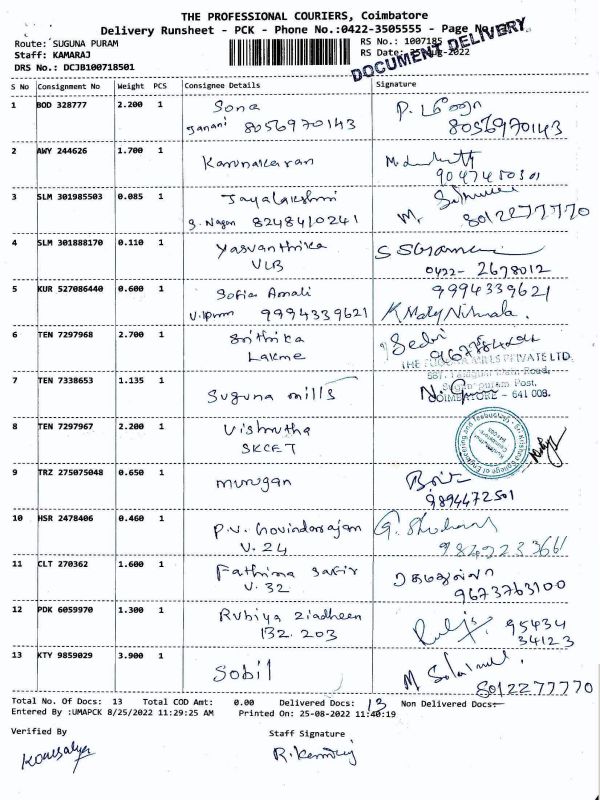 THE PROFESSIONAL COURIERS, Coimbatore
Delivery Runsheet - PCK - Phone No.:0422-3505555 - Page No
Route: SUGUNA PURAM RS No.: 1007185
Staff: KAMARAJ RS Date: Aug-2022
DRS No.: DCJB100718501
DOCUMENT DELIVERY
S No Consignment No Weight PCS Consignee Details Signature
1 BOD 328777 2.200 1 Sona
Janani 8056970143 8056970143
2 AWY 244626 1.700 1 Karunakaran
3 SLM 301985503 0.085 1 Jayalakshmi
g. Nagar 8248410241 M. 8012277770
4 SLM 301888170 0.110 1 Yasvanthika
VLB 0422- 2678012
5 KUR 527086440 0.600 1 Sofia Amali 9994339621
9994339621 K Mary Nirmala.
6 TEN 7297968 2.700 1 Srithika
Lakme
7 TEN 7338653 1.135 1 Suguna mills
Post,
COIMBATORE - 641 008.
8 TEN 7297967 2.200 1 Vishrutha
SKCET
Sri Krishna College of Engineering and Technology
9 TRZ 275075048 0.650 1 murugan
9894472501
10 HSR 2478406 0.460 1 P.V. Govindarajan
V. 24
11 CLT 270362 1.600 1 Fathima Safir
V. 32 9673763100
12 PDK 6059970 1.300 1 Rubiya Ziadheen 95434
B2. 203 34123
13 KTY 9859029 3.900 1 Sobil
8012277770
Total No. Of Docs: 13 Total COD Amt: 0.00 Delivered Docs: 13 Non Delivered Docs:
Entered By :UMAPCK 8/25/2022 11:29:25 AM Printed On: 25-08-2022 11:40:19
Verified By Staff Signature